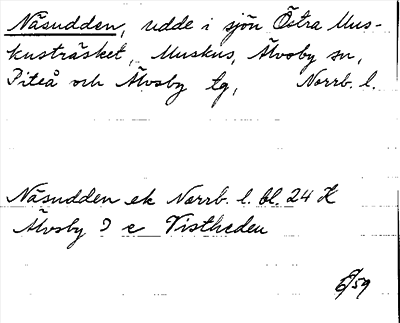 Näsudden, udde i sjön Östra Mus-
kusträsket, Muskus, Älvsby sn,
Piteå och Älvsby tg, Norrb. l.
Näsudden ek Norrb. l. bl. 24 K
Älvsby 9 c Vistheden
/59